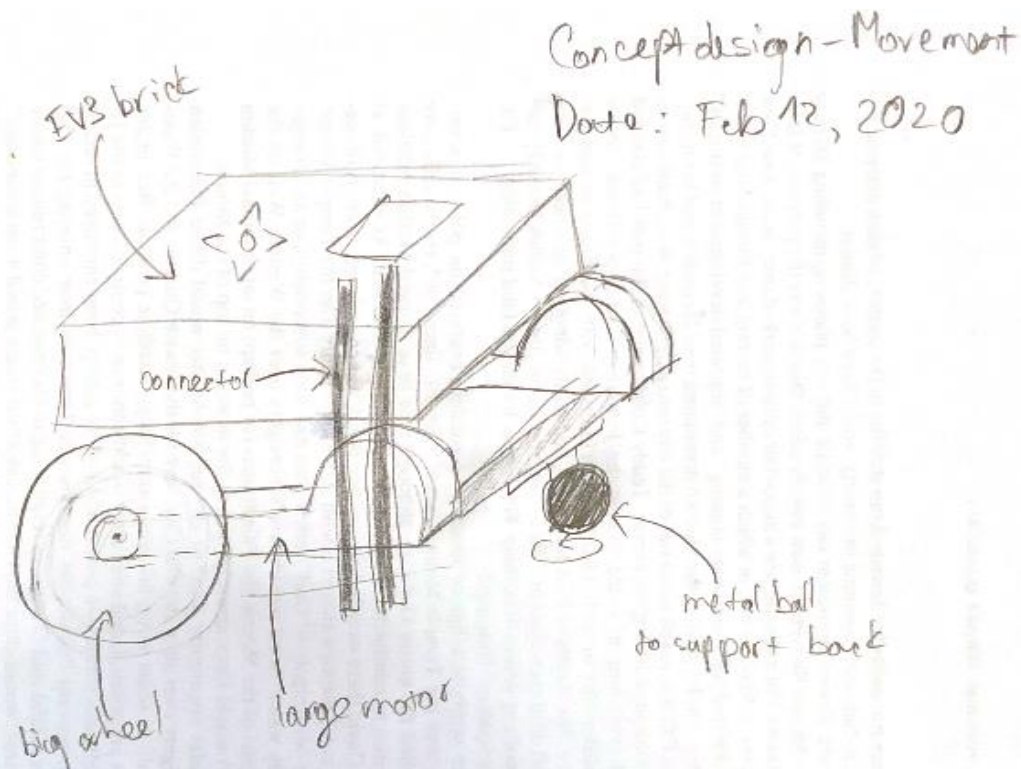 Concept design - Movement
Date: Feb 12, 2020
EV3 brick
connector
metal ball
to support back
large motor
big wheel